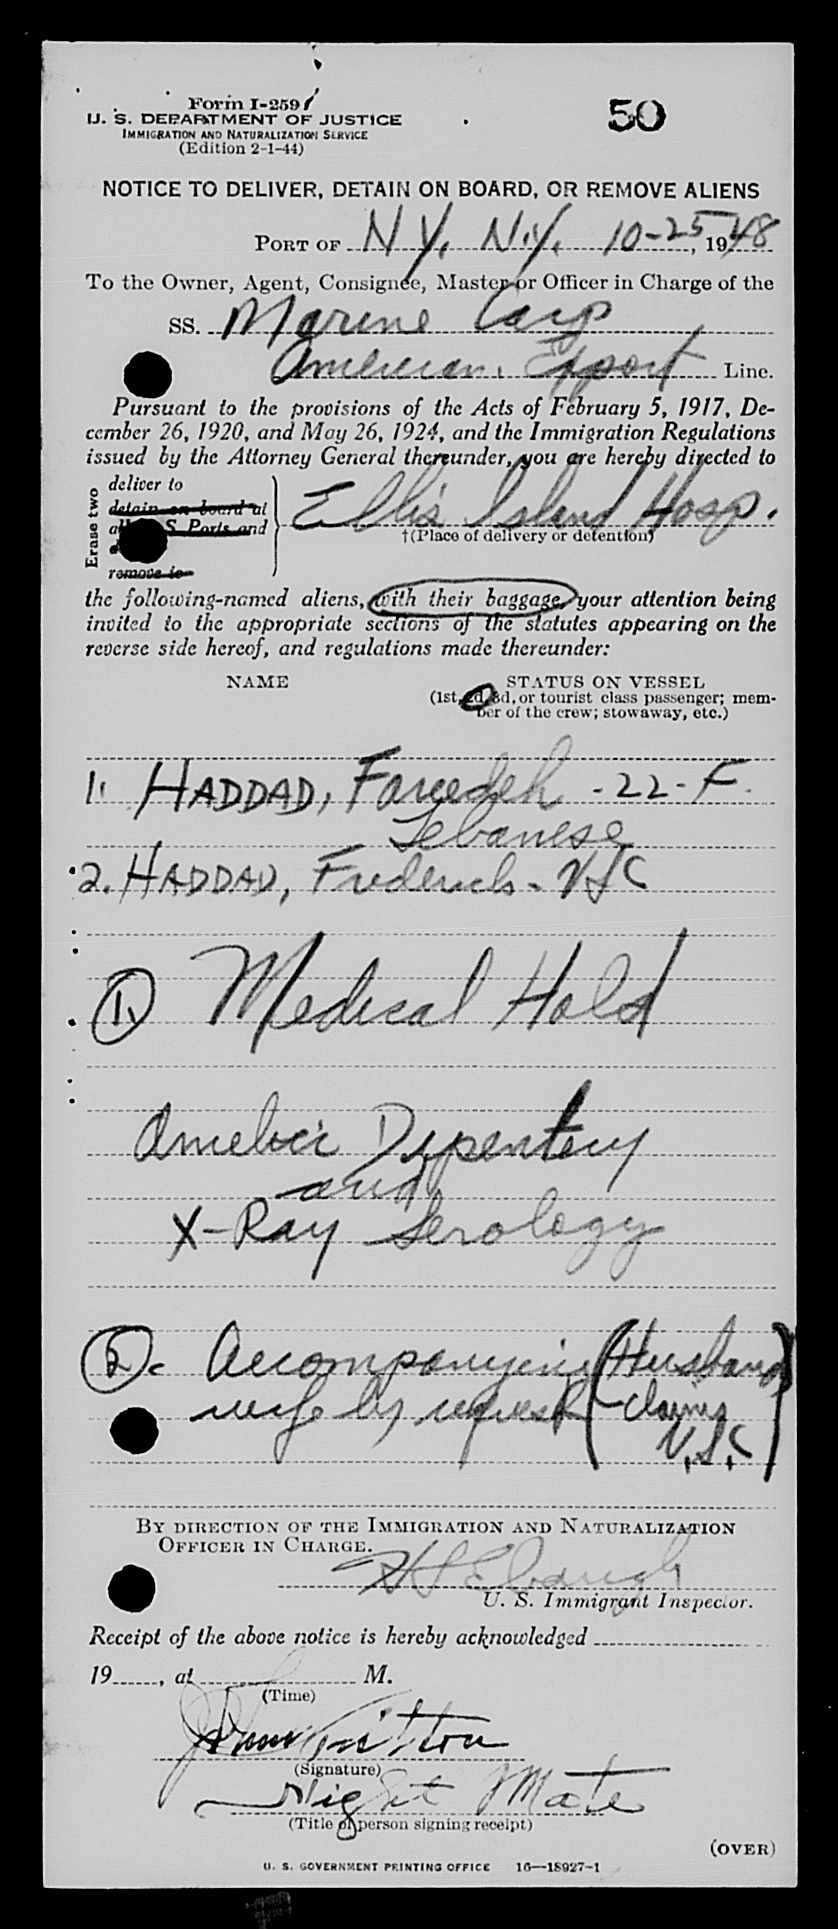 Form I-259
U. S. DEPARTMENT OF JUSTICE
IMMIGRATION AND NATURALIZATION SERVICE
(Edition 2-1-44)
50
NOTICE TO DELIVER, DETAIN ON BOARD, OR REMOVE ALIENS
PORT OF N.Y. N.Y. 10-25, 1948
To the Owner, Agent, Consignee, Master or Officer in Charge of the
SS. Marine Carp
American Export Line.
Pursuant to the provisions of the Acts of February 5, 1917, De-
cember 26, 1920, and May 26, 1924, and the Immigration Regulations
issued by the Attorney General thereunder, you are hereby directed to
Erase two
deliver to
detain on board at
S Ports and
remove to
Ellis Island Hosp.
†(Place of delivery or detention)
the following-named aliens, with their baggage, your attention being
invited to the appropriate sections of the statutes appearing on the
reverse side hereof, and regulations made thereunder:
NAME
STATUS ON VESSEL
(1st, 2d, 3d, or tourist class passenger; mem-
ber of the crew; stowaway, etc.)
1. HADDAD, Fareedeh - 22 - F.
Lebanese
2. HADDAD, Frederick - USC
1. Medical Hold
Amebic Dysentery
and
X-Ray Serology
2. Accompanying (Husband
wife by request claims
U.S.C)
BY DIRECTION OF THE IMMIGRATION AND NATURALIZATION
OFFICER IN CHARGE.
U. S. Immigrant Inspector.
Receipt of the above notice is hereby acknowledged
19, at M.
(Time)
(Signature)
Night Mate
(Title of person signing receipt)
(OVER)
U. S. GOVERNMENT PRINTING OFFICE 16—18927-1